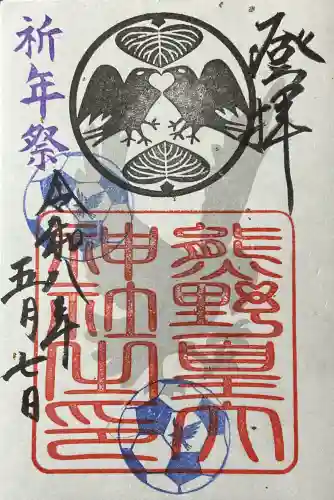 登拝
熊野皇大
神社之印
祈年祭
令和八年
五月七日